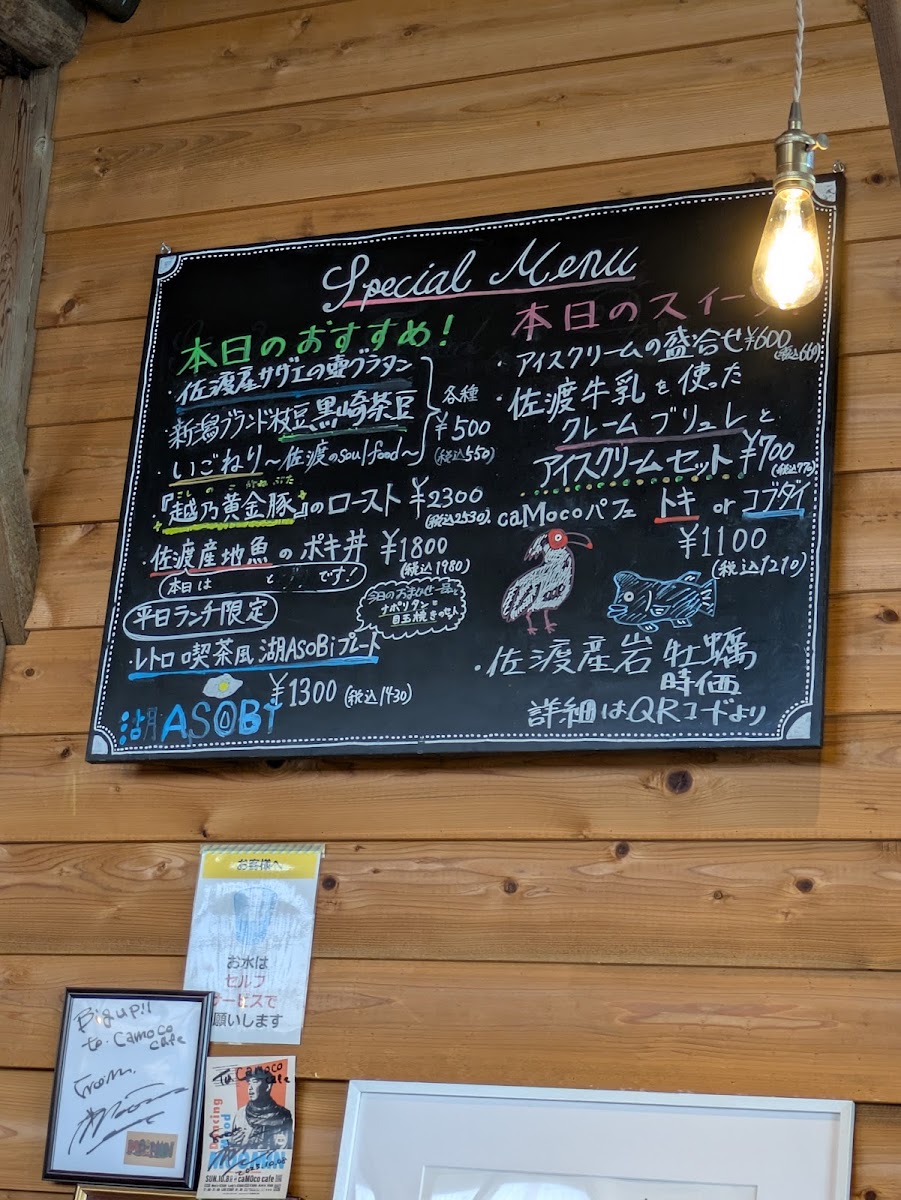 Special Menu
本日のおすすめ!
佐渡産サザエの壷グラタン
・新潟ブランド枝豆黒崎茶豆
・いごねり〜佐渡のsoul food〜
各種
¥500
(税込550)
こしのこがねぶた
『越乃黄金豚』のロースト ¥2300
(税込2530)
・佐渡産地魚のポキ丼 ¥1800
(税込1980)
本日は と です!
平日ランチ限定
今日のおまかせ一品と
ナポリタン
目玉焼きのせ
・レトロ喫茶風湖ASOBiプレート
¥1300 (税込1430)
湖ASOBi
本日のスイー
・アイスクリームの盛合せ ¥600
(税込660)
・佐渡牛乳を使った
クレームブリュレと
アイスクリームセット ¥700
(税込770)
caMocoパフェ トキ or コブダイ
¥1100
(税込1210)
・佐渡産岩牡蠣
時価
詳細はQRコードより
お客様へ
お水は
セルフ
サービスで
願いします
Big up!!
to. Camoco
cafe
from.
To. Camoco
cafe
Dancing
Mood
SUN.10.8
caMOco cafe